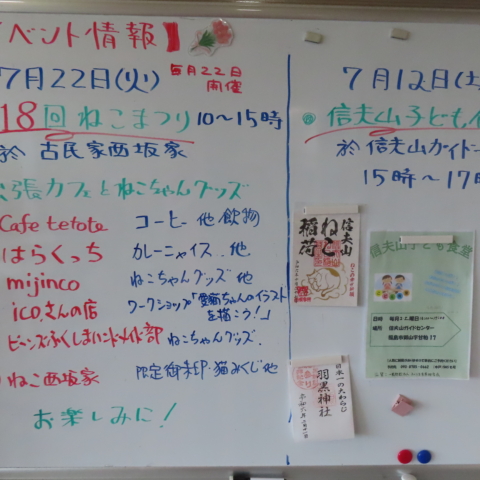 イベント情報】
7月22日(火)
毎月22日
開催
18回 ねこまつり 10〜15時
於 古民家西坂家
出張カフェとねこちゃんグッズ
Cafe tetote コーヒー 他 飲物
はらくっち カレーニャイス.他
mijinco ねこちゃんグッズ 他
icoさんの店 ワークショップ「愛猫ちゃんのイラスト
を描こう!」
ビーンズふくしまハンドメイド部 ねこちゃんグッズ.
ねこ西坂家 限定御朱印・猫みくじ他
お楽しみに!
7月12日(土
信夫山子ども
於 信夫山ガイドセ
15時〜17時
信夫山
ねこ
稲荷
日本一の大わらじ
羽黒神社
信夫山子ども食堂
信夫山ガイドセンター